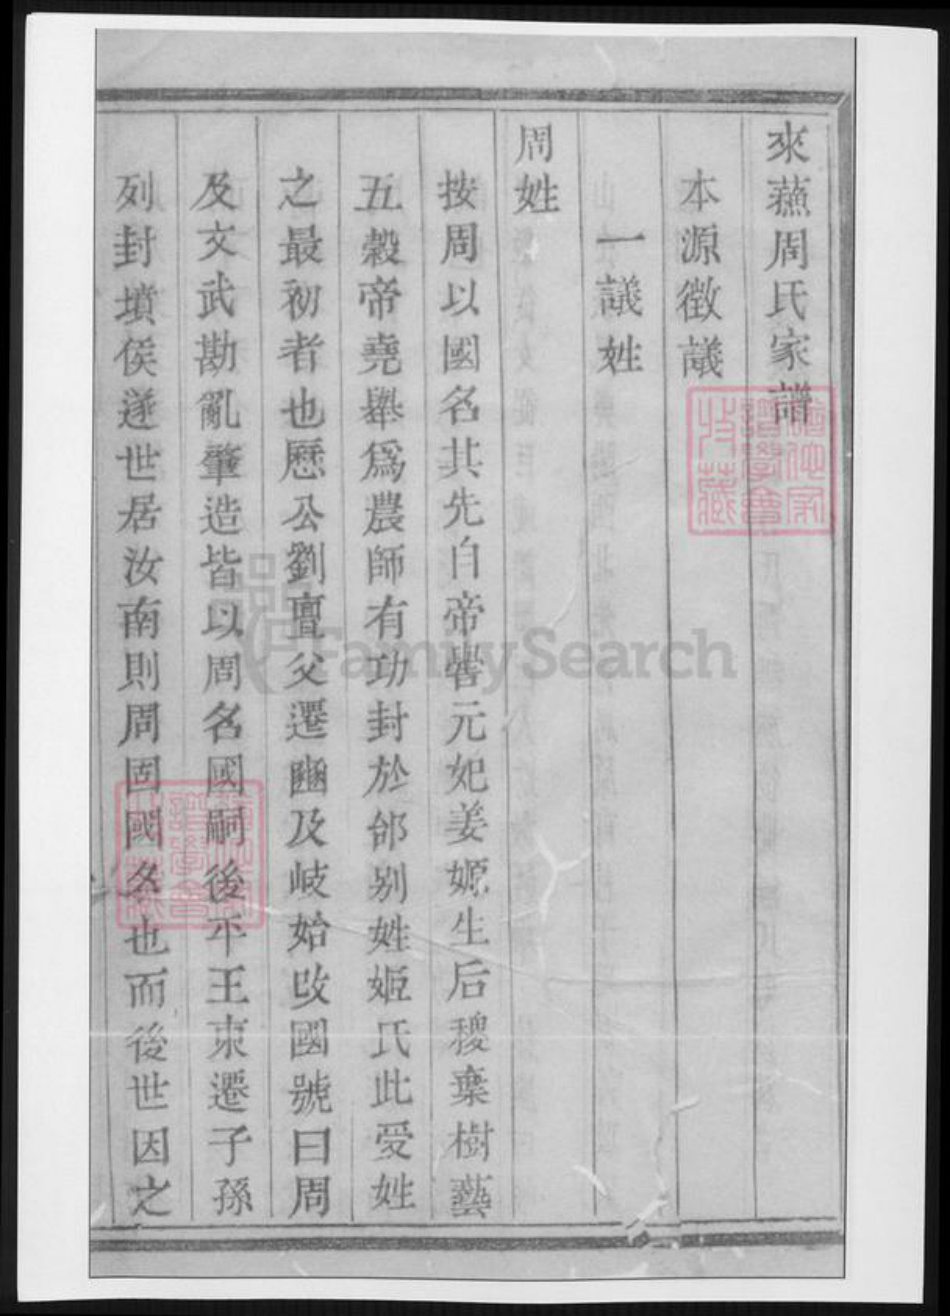 來蘓周氏家譜
本源徵議
一議姓
周姓
按周以國名其先自帝嚳元妃姜嫄生后稷棄樹藝
五穀帝堯舉爲農師有功封於邰别姓姬氏此受姓
之最初者也歷公劉亶父遷豳及岐始改國號曰周
及文武勘亂肇造皆以周名國嗣後平王東遷子孫
列封墳侯遂世居汝南則周固國名也而後世因之
FamilySearch